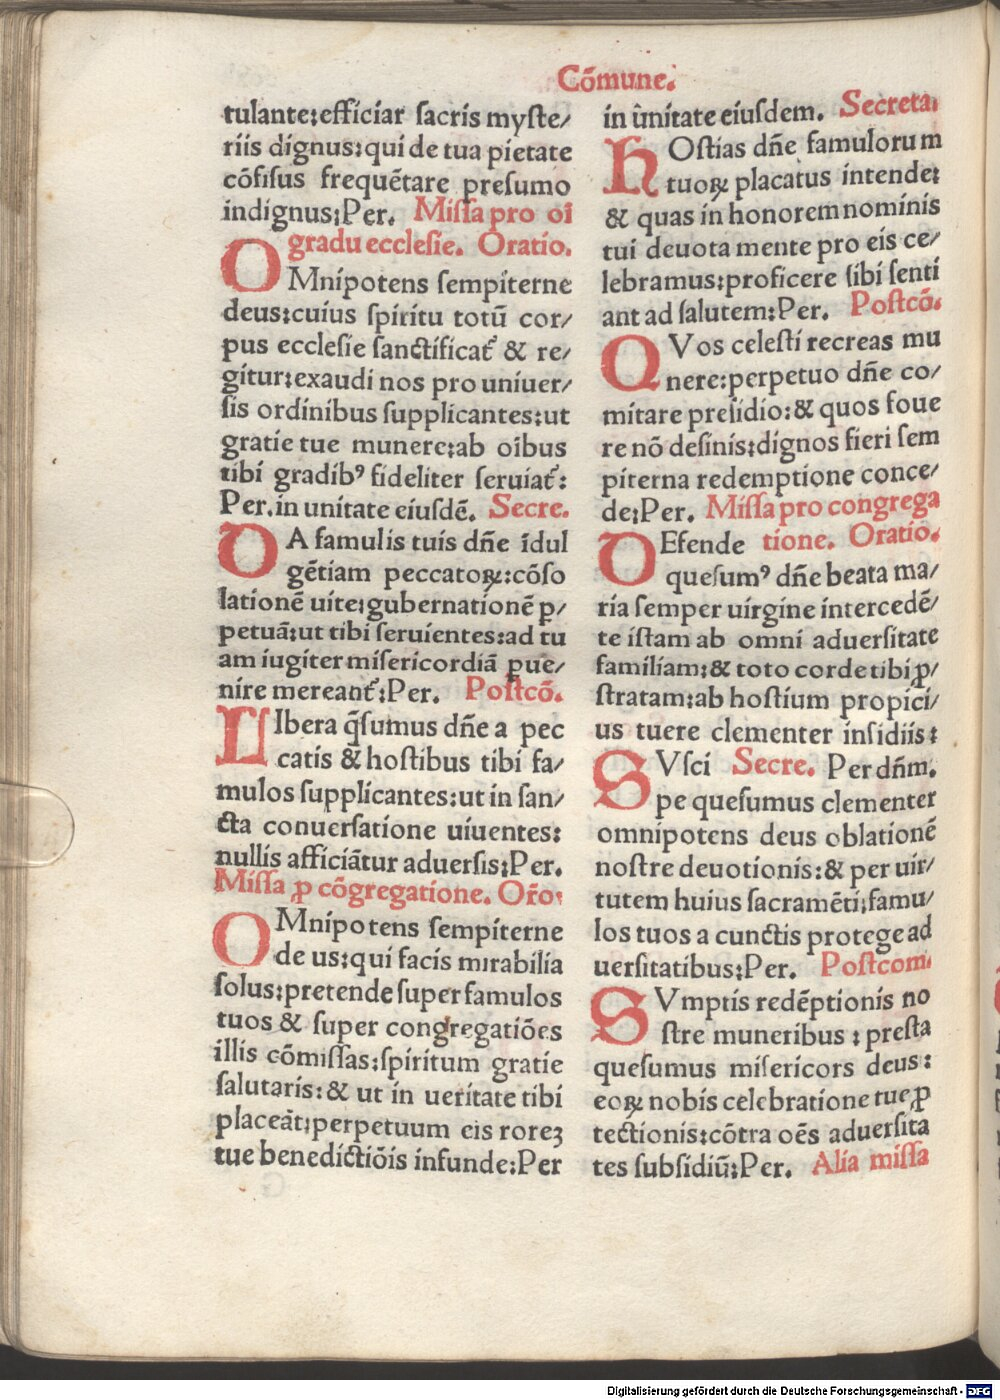 Cōmune.
tulante:efficiar sacris myste/
riis dignus:qui de tua pietate
cōfisus frequētare presumo
indignus:Per. Missa pro oī
gradu ecclesie. Oratio.
OMnipotens sempiterne
deus:cuius spiritu totū cor/
pus ecclesie sanctificat̄ & re/
gitur:exaudi nos pro uniuer/
sis ordinibus supplicantes:ut
gratie tue munere:ab oībus
tibi gradibꝰ fideliter seruiat̄:
Per.in unitate eiusdē. Secre.
DA famulis tuis dn̄e īdul
gētiam peccatoꝝ:cōso
lationē uite:gubernationē p̱/
petuā:ut tibi seruientes:ad tu
am iugiter misericordiā ꝑue/
nire mereant̄:Per. Postcō.
LIbera q̄sumus dn̄e a pec
catis & hostibus tibi fa/
mulos supplicantes:ut in san/
cta conuersatione uiuentes:
nullis afficiātur aduersis:Per.
Missa ꝓ cōgregatione. Orō:
OMnipotens sempiterne
de us:qui facis mirabilia
solus:pretende super famulos
tuos & super congregatiōes
illis cōmissas:spiritum gratie
salutaris:& ut in ueritate tibi
placeāt:perpetuum eis roreꝫ
tue benedictiōis infunde:Per
in ūnitate eiusdem. Secreta.
HOstias dn̄e famulorum
tuoꝝ placatus intende:
& quas in honorem nominis
tui deuota mente pro eis ce/
lebramus:proficere sibi senti
ant ad salutem:Per. Postcō.
QVos celesti recreas mu
nere:perpetuo dn̄e co/
mitare presidio:& quos foue
re nō desinis:dignos fieri sem
piterna redemptione conce/
de:Per. Missa pro congrega
DEfende tione. Oratio.
quesumꝰ dn̄e beata ma/
ria semper uirgine intercedē/
te istam ab omni aduersitate
familiam:& toto corde tibi ꝓ/
stratam:ab hostium propici/
us tuere clementer insidiis:
SVsci Secre. Per dn̄m.
pe quesumus clementer
omnipotens deus oblationē
nostre deuotionis:& per uir/
tutem huius sacramēti:famu/
los tuos a cunctis protege ad
uersitatibus:Per. Postcom.
SVmptis redēptionis no
stre muneribus : presta
quesumus misericors deus:
eoꝝ nobis celebratione tue ꝓ
tectionis:cōtra oēs aduersita
tes subsidiū:Per. Alia missa
Digitalisierung gefördert durch die Deutsche Forschungsgemeinschaft - DFG